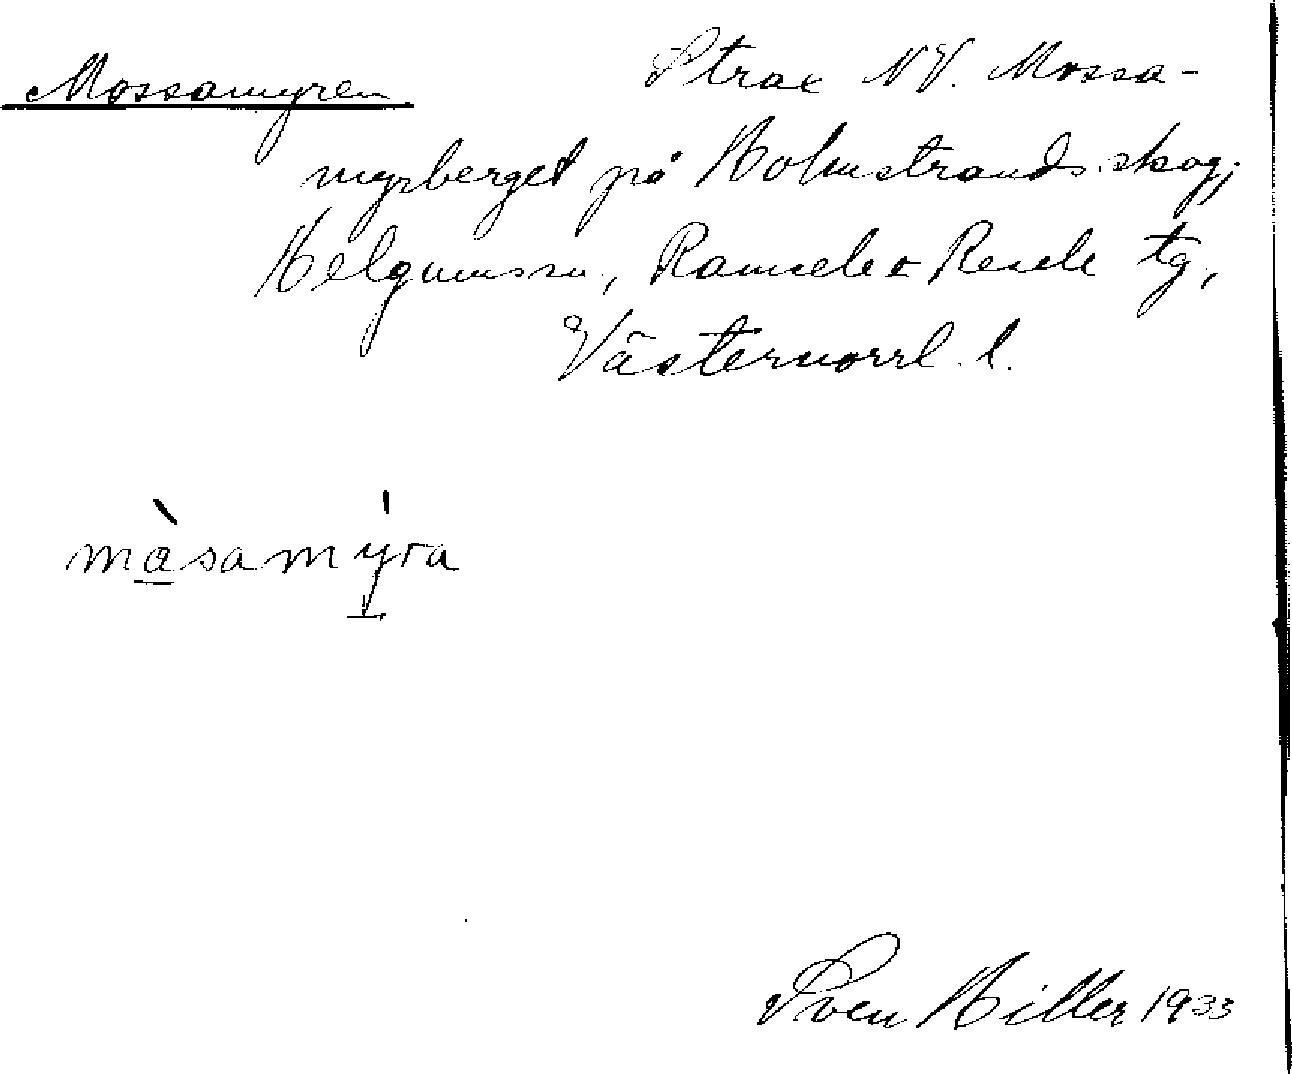 Mossamyren Strax NV. Mossa-
myrberget på Holmstrands skog,
Helgums sn, Ramsele o Resele tg,
Västernorrl. l.
màsamýra
Sven Hiller 1933